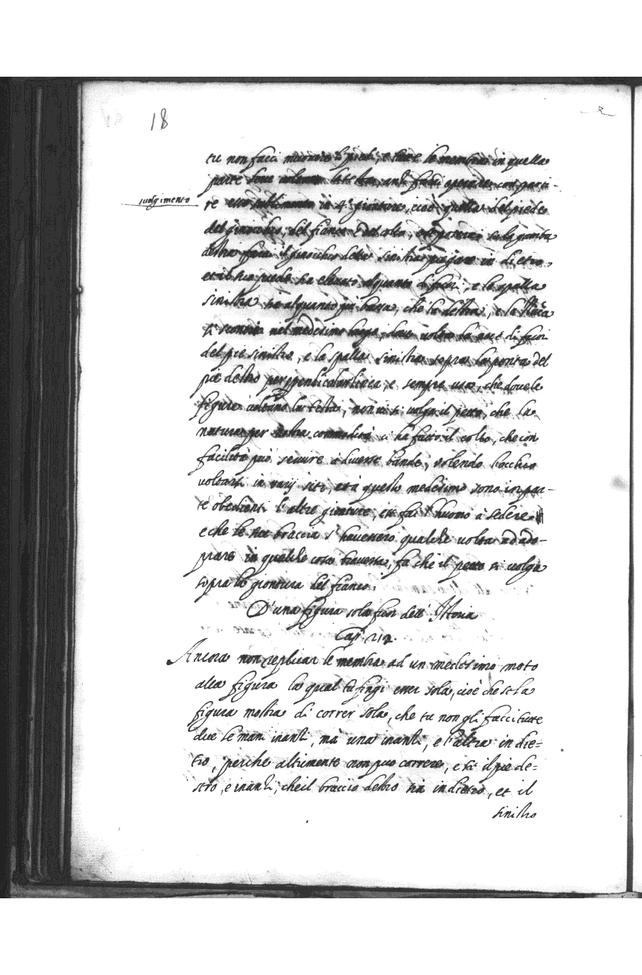 18
tu non facci muovere i piedi, e tutte le membra in quella
parte dove voltano la testa, anzi fatti opera de compari-
svolgimento
re esso in 4 gionture, cioè quella del piede
del ginocchio, del fianco e del collo, et se poserai su la gamba
destra farai il ginocchio della sinistra piegare in dietro
et il suo piede sia elevato alquanto di fuori, e la spalla
sinistra sia alquanto più bassa, che la destra, e la
si scontri nel medesimo luogo, dove volta la noce di fuori
del piè sinistro, e la spalla sinistra sopra la ponta del
piè destro perpendicolarliera e sempre usa, che dove le
figure voltano la testa, non vi si volga il petto, che la
natura per nostra commodità ci ha fatto il collo, che con
facilità può servire a diverse bande, volendo l'occhio
voltarsi in varij siti, et à questo medesimo sono in par-
te obedienti l'altre gionture, et se fai l'huomo a sedere
e che le sue braccia s'havessero qualche volta ad ado-
prare in qualche cosa traversa, fa che il petto si volga
sopra la giontura del fianco.
D'una figura sola fuor dell'Istoria
Cap. 217.
Ancora non replicar le membra ad un medesimo moto
alla figura la qual tu fingi esser sola, cioè che se la
figura mostra di correr sola, che tu non gli facci tutte
due le mani inanti, ma una inanti, e l'altra in die-
tro, perche altrimente non puo correre, e se il piè de-
stro, e inanti, che il braccio destro sia indietro, et il
sinistro